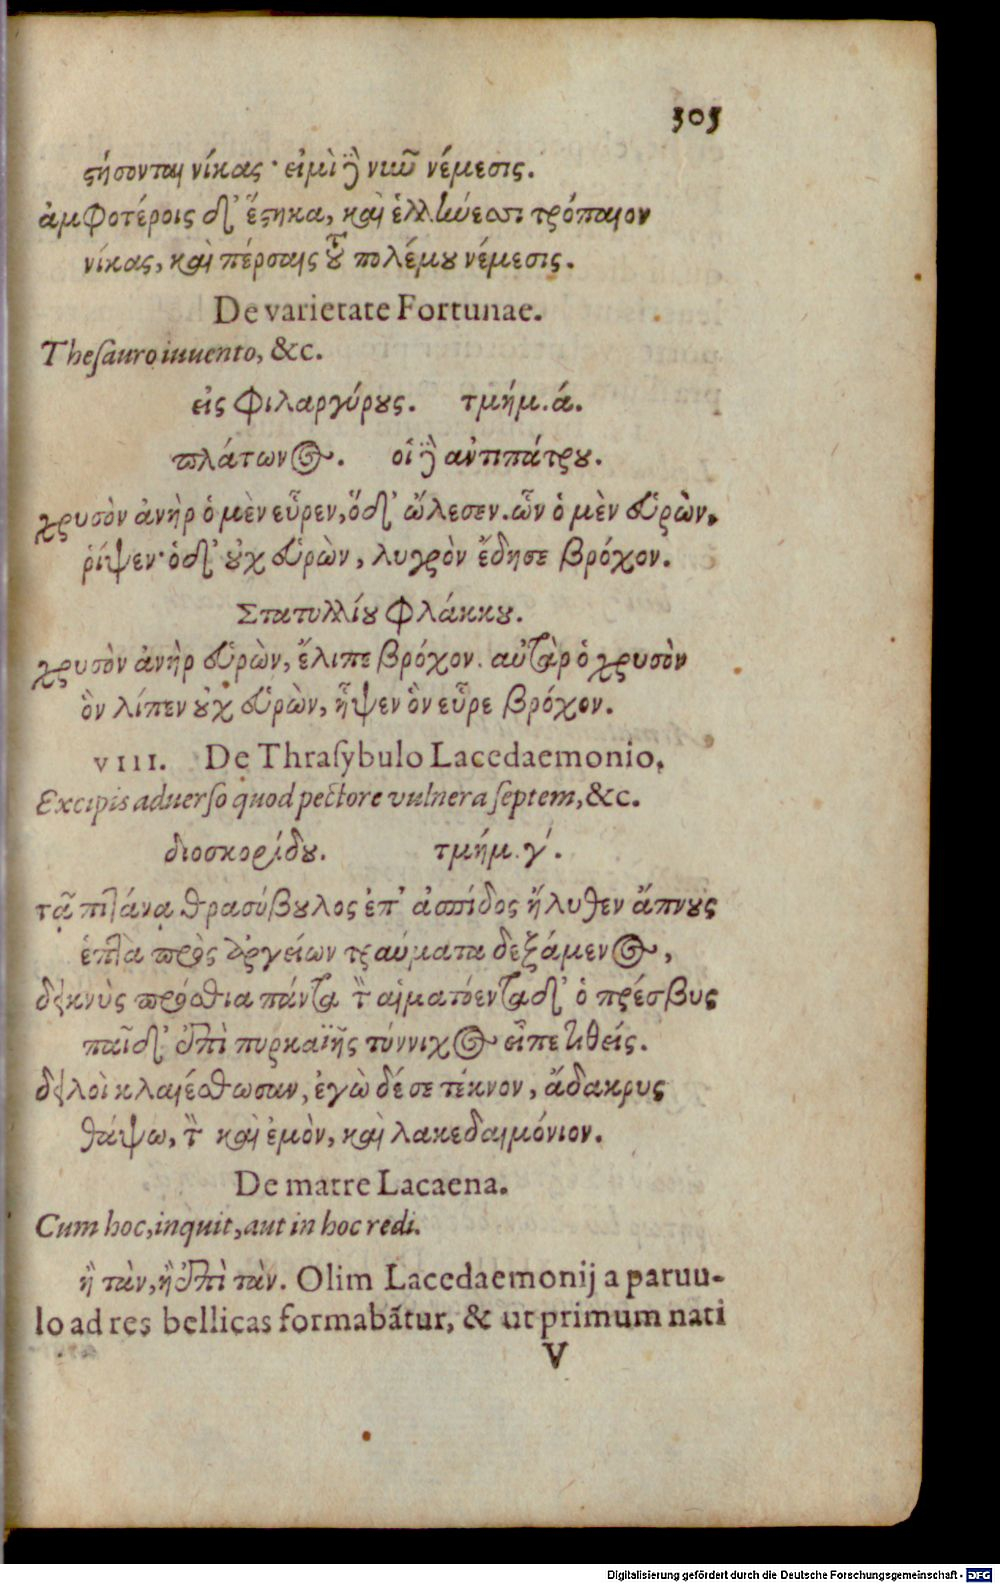 305
στήσονται νίκας· εἰμὶ δὲ νῦν νέμεσις.
ἀμφοτέροις δ' ἕστηκα, καὶ ἑλλήνεσσι τρόπαιον
νίκας, καὶ πέρσαις τοῦ πολέμου νέμεσις.
De varietate Fortunae.
Thesauro inuento, &c.
εἰς φιλαργύρους. τμήμ. ά.
πλάτωνος. οἱ δὲ ἀντιπάτρου.
χρυσὸν ἀνὴρ ὁ μὲν εὗρεν, ὅδ' ὤλεσεν. ὧν ὁ μὲν εὑρὼν,
ῥίψεν· ὁδ' οὐχ εὑρὼν, λυγρὸν ἔδησε βρόχον.
Στατυλλίου φλάκκου.
χρυσὸν ἀνὴρ εὑρὼν, ἔλιπε βρόχον. αὐτὰρ ὁ χρυσὸν
ὃν λίπεν οὐχ εὑρὼν, ἧψεν ὃν εὗρε βρόχον.
VIII. De Thrasybulo Lacedaemonio.
Excipis aduerso quod pectore vulnera septem, &c.
διοσκορίδου. τμήμ. γ΄.
τᾷ πιτάνᾳ θρασύβουλος ἐπ' ἀσπίδος ἤλυθεν ἄπνους
ἑπτὰ πρὸς ἀργείων τραύματα δεξάμενος,
δεικνὺς πρόσθια πάντα· τὸν αἱματόεντα δ' ὁ πρέσβυς
παῖδ' ἐπὶ πυρκαϊῆς τύννιχος εἶπε τιθείς.
δειλοὶ κλαιέσθωσαν, ἐγὼ δέ σε τέκνον, ἄδακρυς
θάψω, τὸν καὶ ἐμὸν, καὶ λακεδαιμόνιον.
De matre Lacaena.
Cum hoc, inquit, aut in hoc redi.
ἢ τὰν, ἢ ἐπὶ τὰν. Olim Lacedaemonij a paruu-
lo ad res bellicas formabãtur, & ut primum nati
V
Digitalisierung gefördert durch die Deutsche Forschungsgemeinschaft - DFG